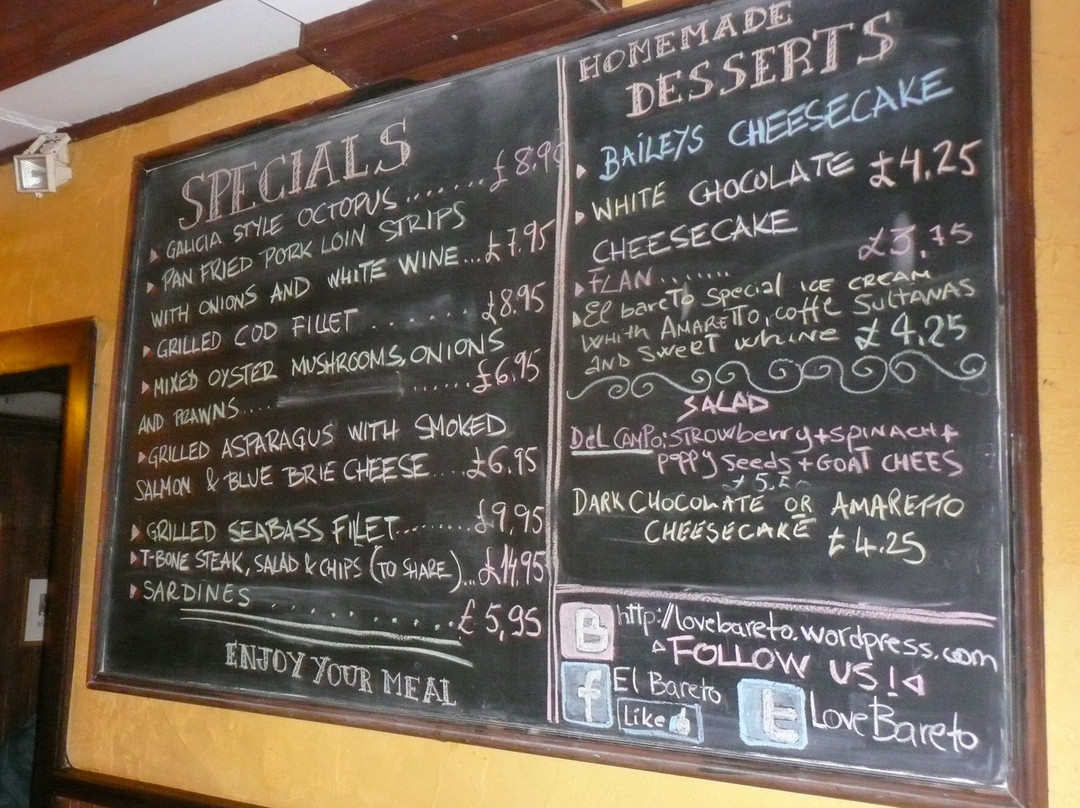 SPECIALS
GALICIA STYLE OCTOPUS.......£8.90
PAN FRIED PORK LOIN STRIPS
WITH ONIONS AND WHITE WINE...£7.95
GRILLED COD FILLET.......£8.95
MIXED OYSTER MUSHROOMS, ONIONS
AND PRAWNS.... ......£6.95
GRILLED ASPARAGUS WITH SMOKED
SALMON & BLUE BRIE CHEESE...£6.95
GRILLED SEABASS FILLET.......£9,95
T-BONE STEAK, SALAD & CHIPS (TO SHARE)...£14.95
SARDINES..........£5,95
ENJOY YOUR MEAL
HOMEMADE
DESSERTS
BAILEYS CHEESECAKE
WHITE CHOCOLATE £4.25
CHEESECAKE
FLAN....... £3.75
El bareto special ICE CREAM
whith AMARETTO, coffe SULTANAS
AND SWEET whine £4.25
SALAD
DEL CAMPO: STROWberry+SPINACH+
poppy seeds+GOAT CHEES
DARK CHOCOLATE OR AMARETTO
CHEESECAKE £4.25
B http://lovebareto.wordpress.com
FOLLOW US!
f El Bareto
Like
t LoveBareto